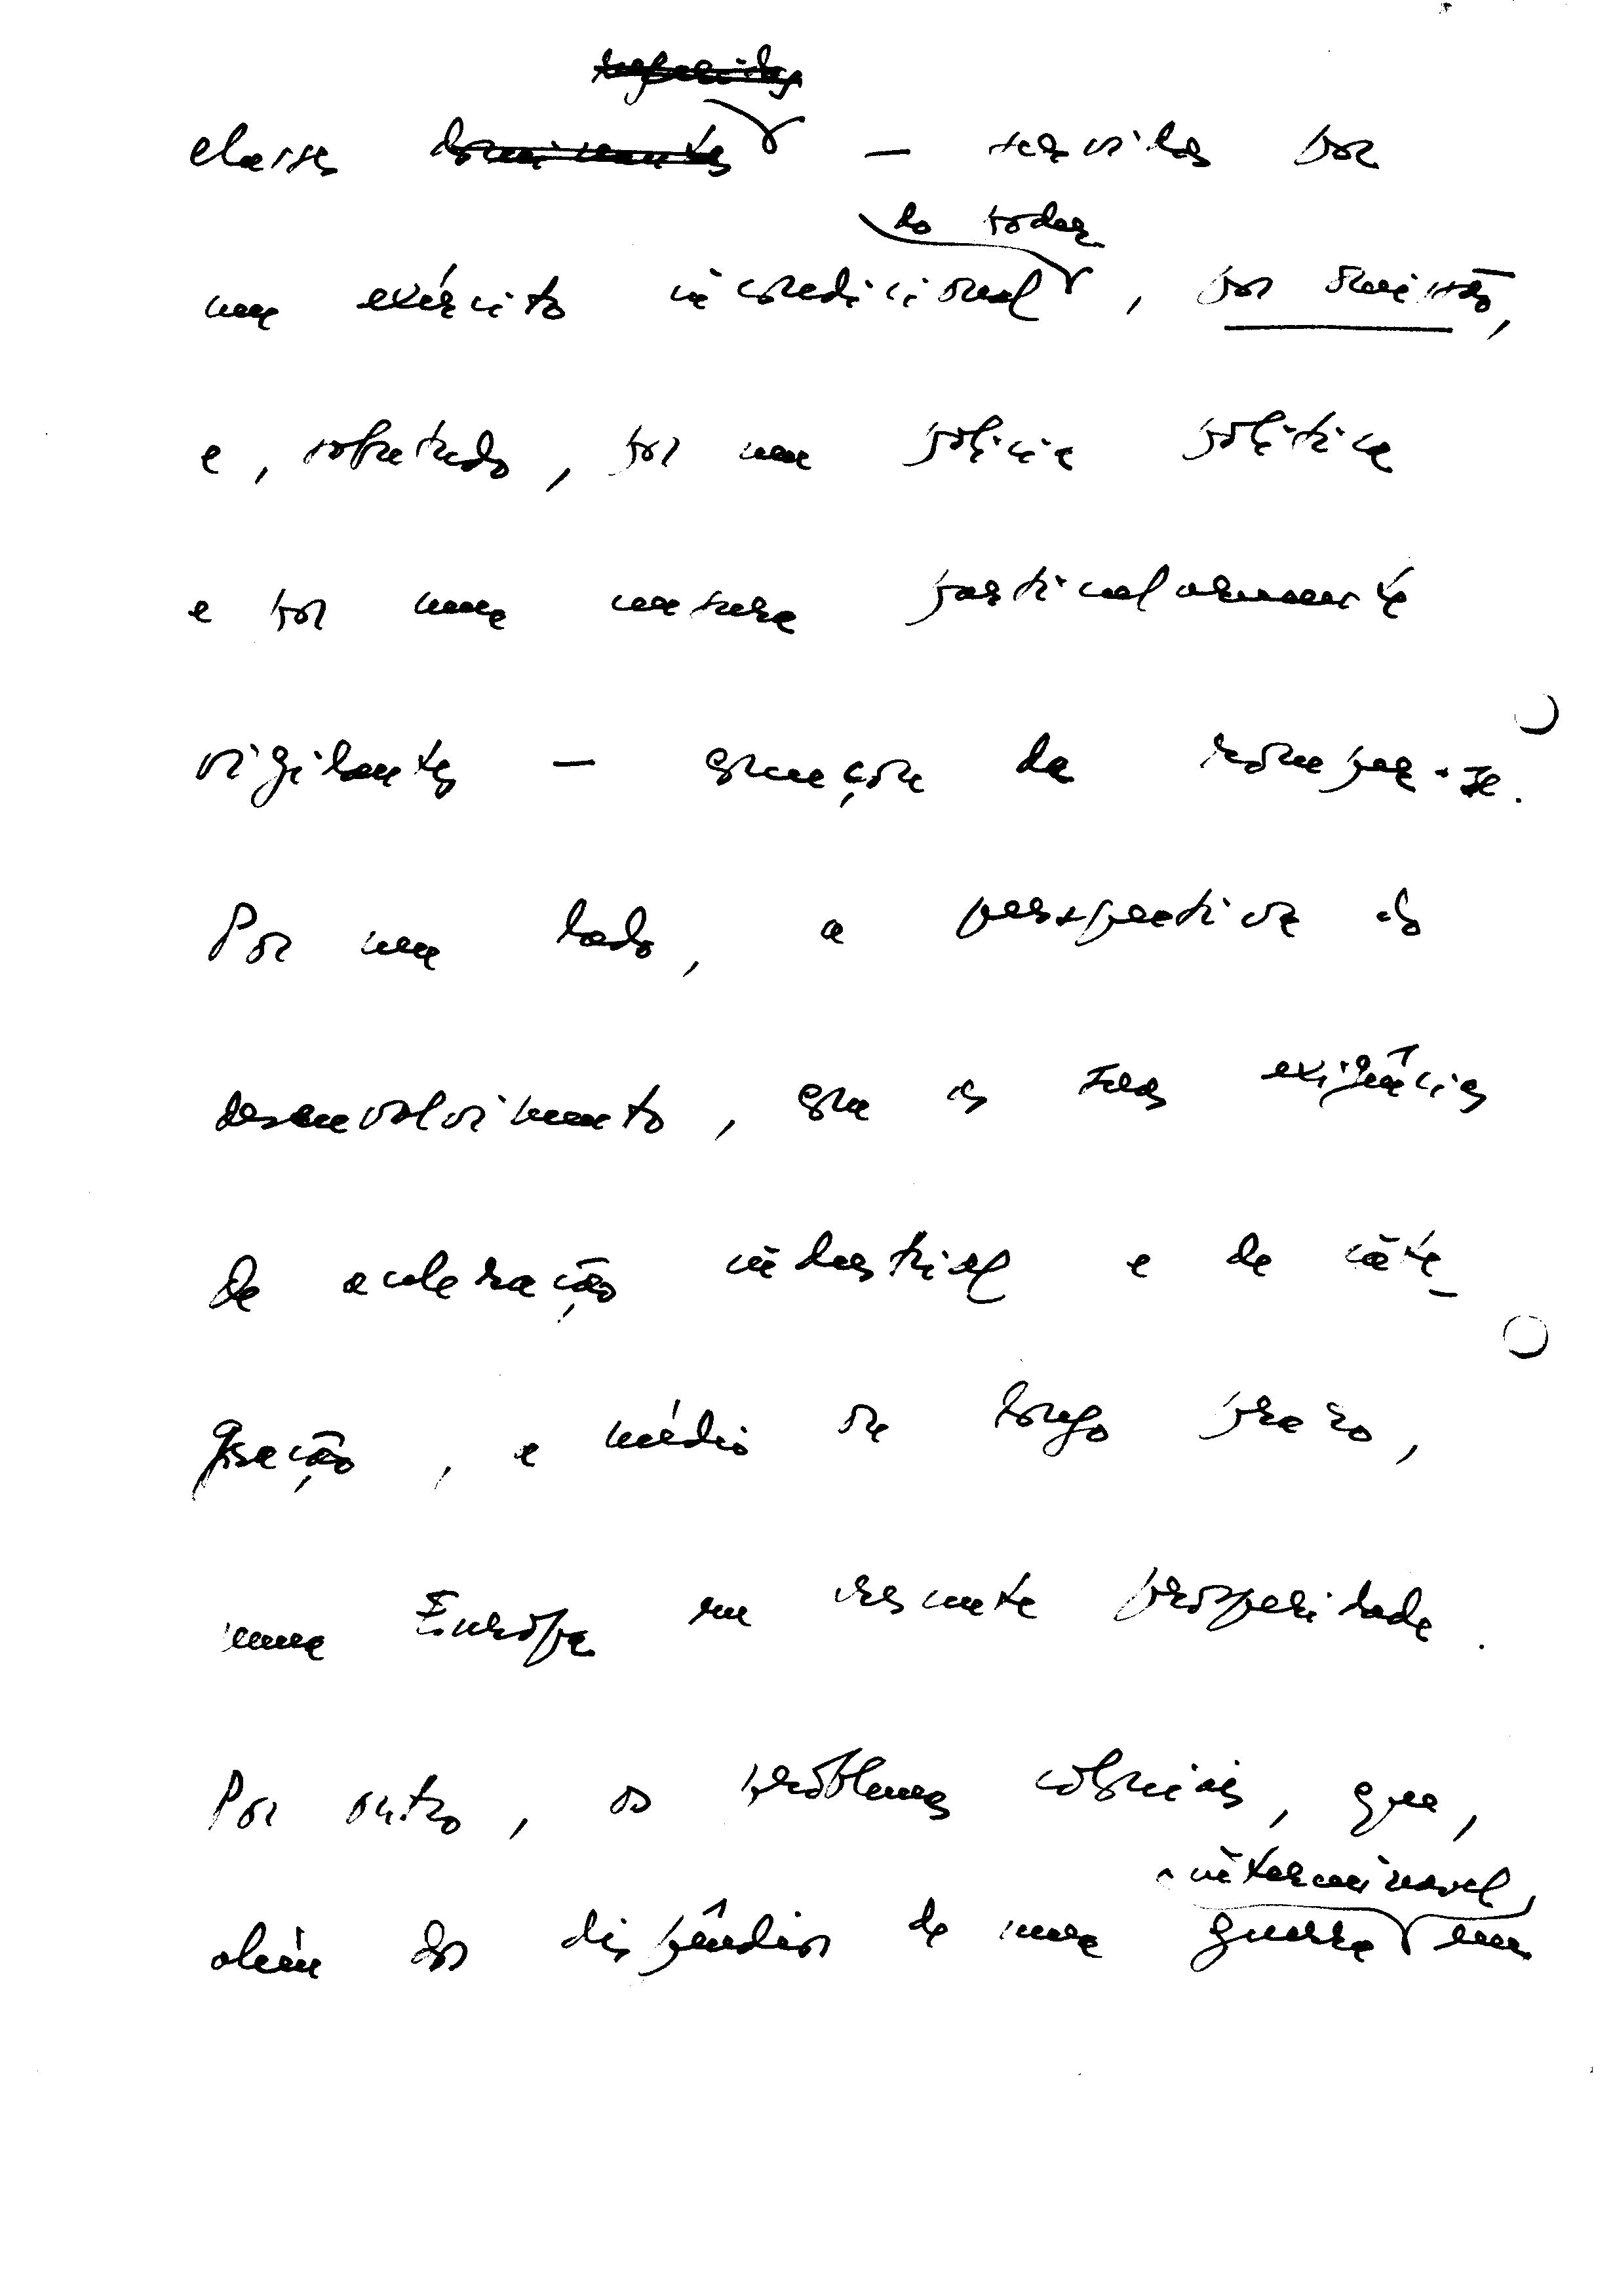 classes dominantes — servidas por
do poder
um exército incondicional, por omissão,
e, sobretudo, por uma polícia política
e por uma censura particularmente
vigilantes — começou a romper-se.
Por um lado, a perspectiva do
desenvolvimento, com as suas exigências
de aceleração industrial e de inte-
gração, a médio ou longo prazo,
numa Europa em crescente prosperidade.
Por outro, os problemas coloniais, que,
interminável
além dos dispêndios de uma guerra em